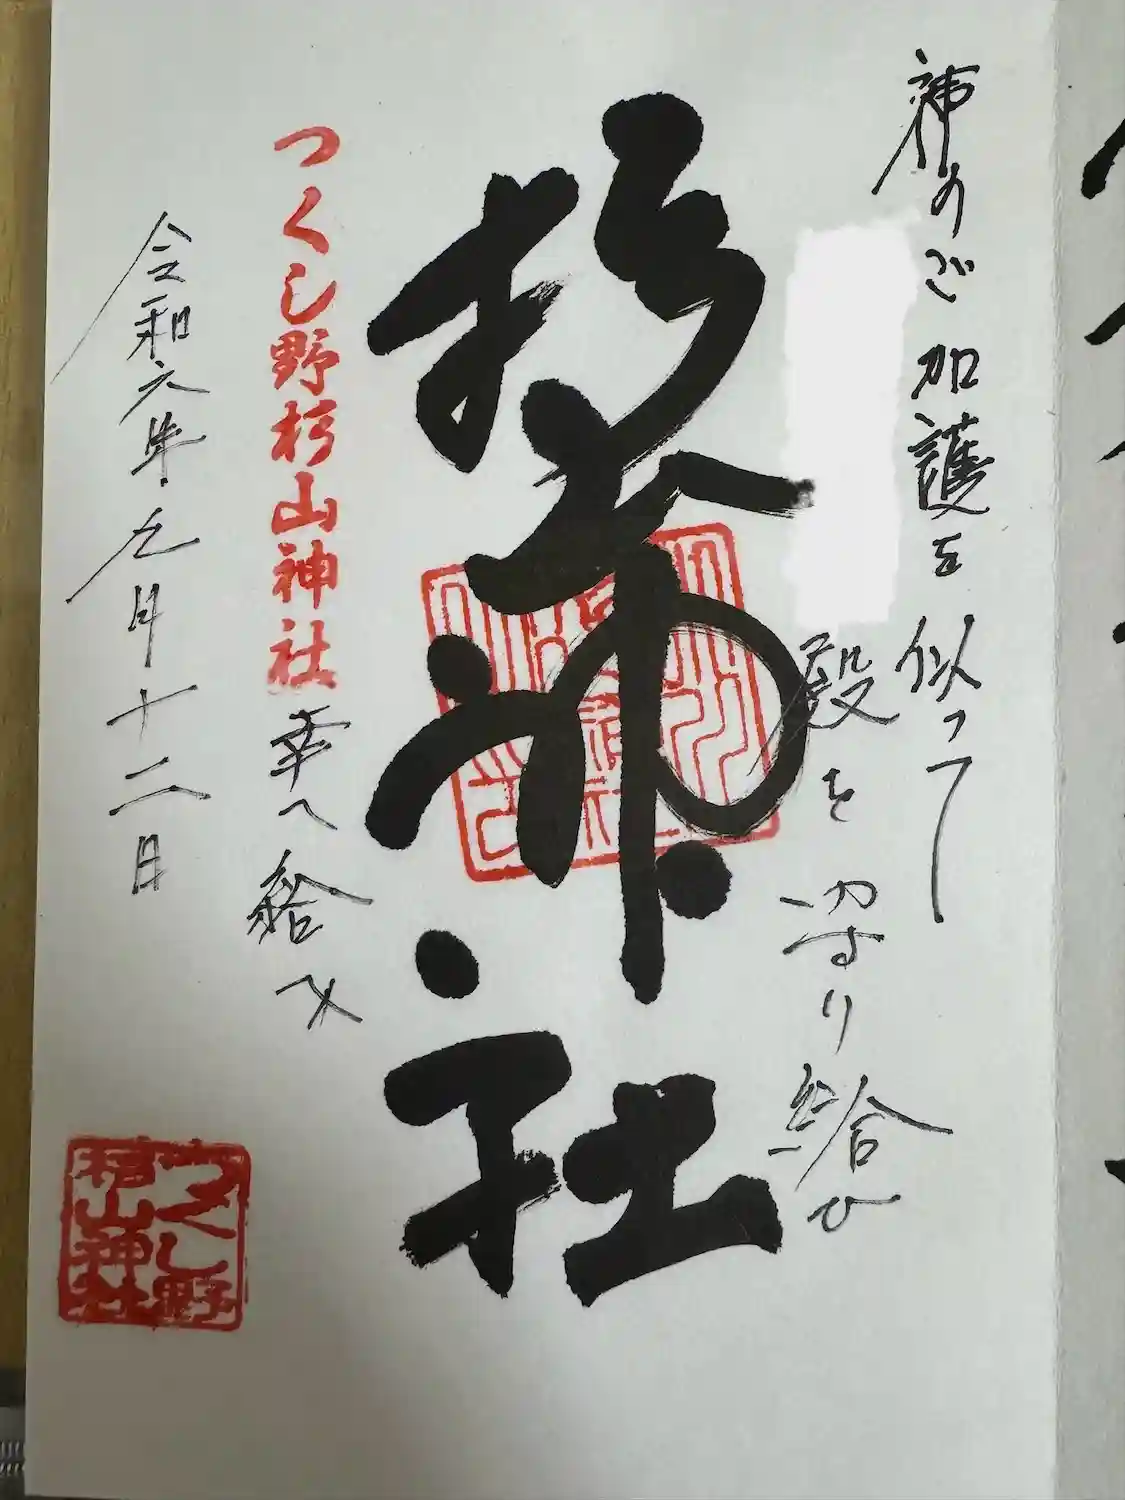 神のご加護を似って
殿を守り給ひ
杉山神社
つくし野杉山神社
幸へ給へ
令和六年九月十二日
つくし野
杉山神社